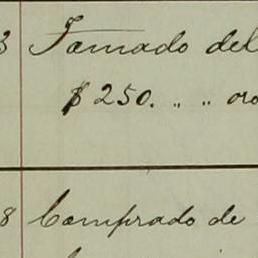 3 Tomado del
$250. „ „ oro
8 Comprado de